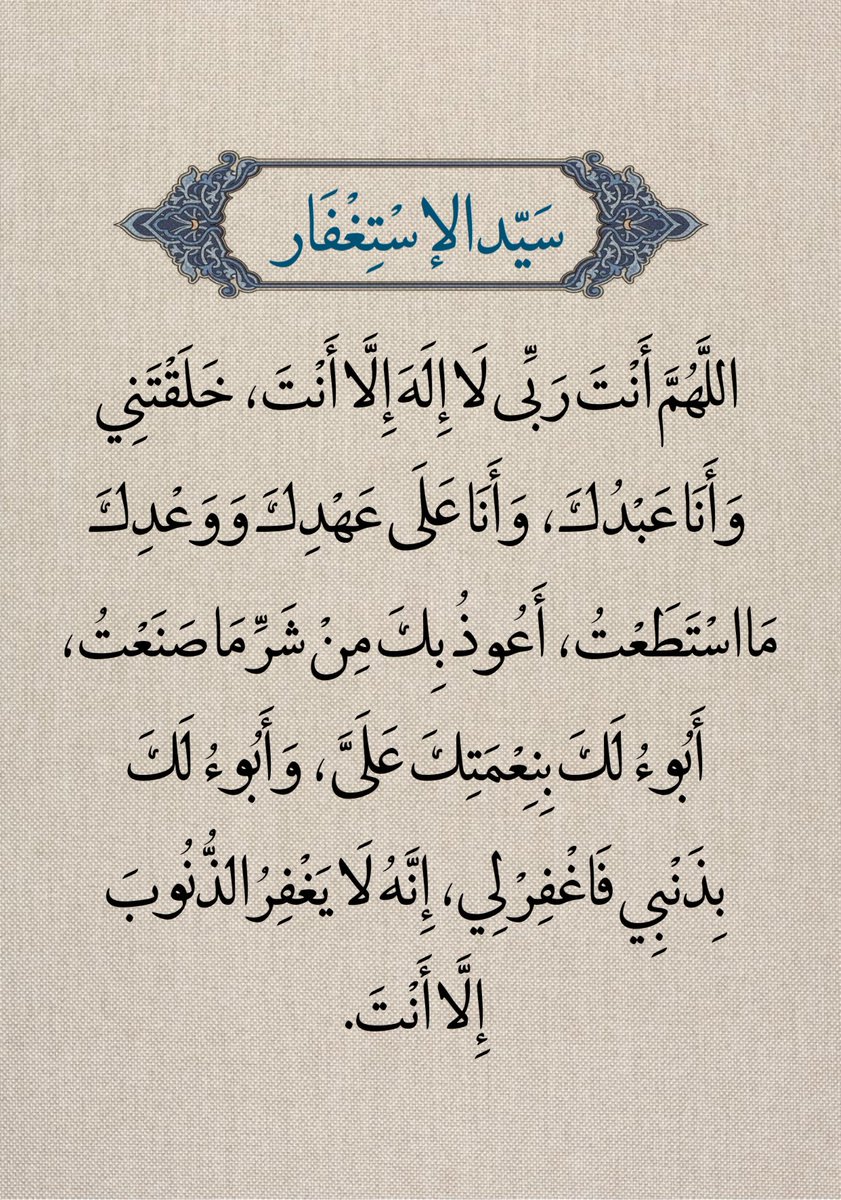 سَيّد الإسْتِغْفَار
اللَّهُمَّ أَنْتَ رَبِّى لَا إِلَهَ إِلَّا أَنْتَ، خَلَقْتَنِي
وَأَنَا عَبْدُكَ، وَأَنَا عَلَى عَهْدِكَ وَوَعْدِكَ
مَا اسْتَطَعْتُ، أَعُوذُ بِكَ مِنْ شَرِّ مَا صَنَعْتُ،
أَبُوءُ لَكَ بِنِعْمَتِكَ عَلَىَّ، وَأَبُوءُ لَكَ
بِذَنْبِي فَاغْفِرْ لِي، إِنَّهُ لَا يَغْفِرُ الذُّنُوبَ
إِلَّا أَنْتَ.